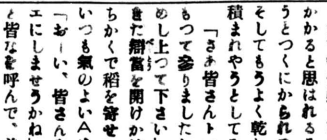 かかると思はれる
うとつくにかられ
そしてもうよく乾
積まれやうとして
「さあ皆さんト
もつて参りました
めし上つて下さい
きた辯當を開けか
ちかくで稻を寄せ
いつも氣のよいA
「おーい、皆さん
エにしませうかね
と皆なを呼んで、